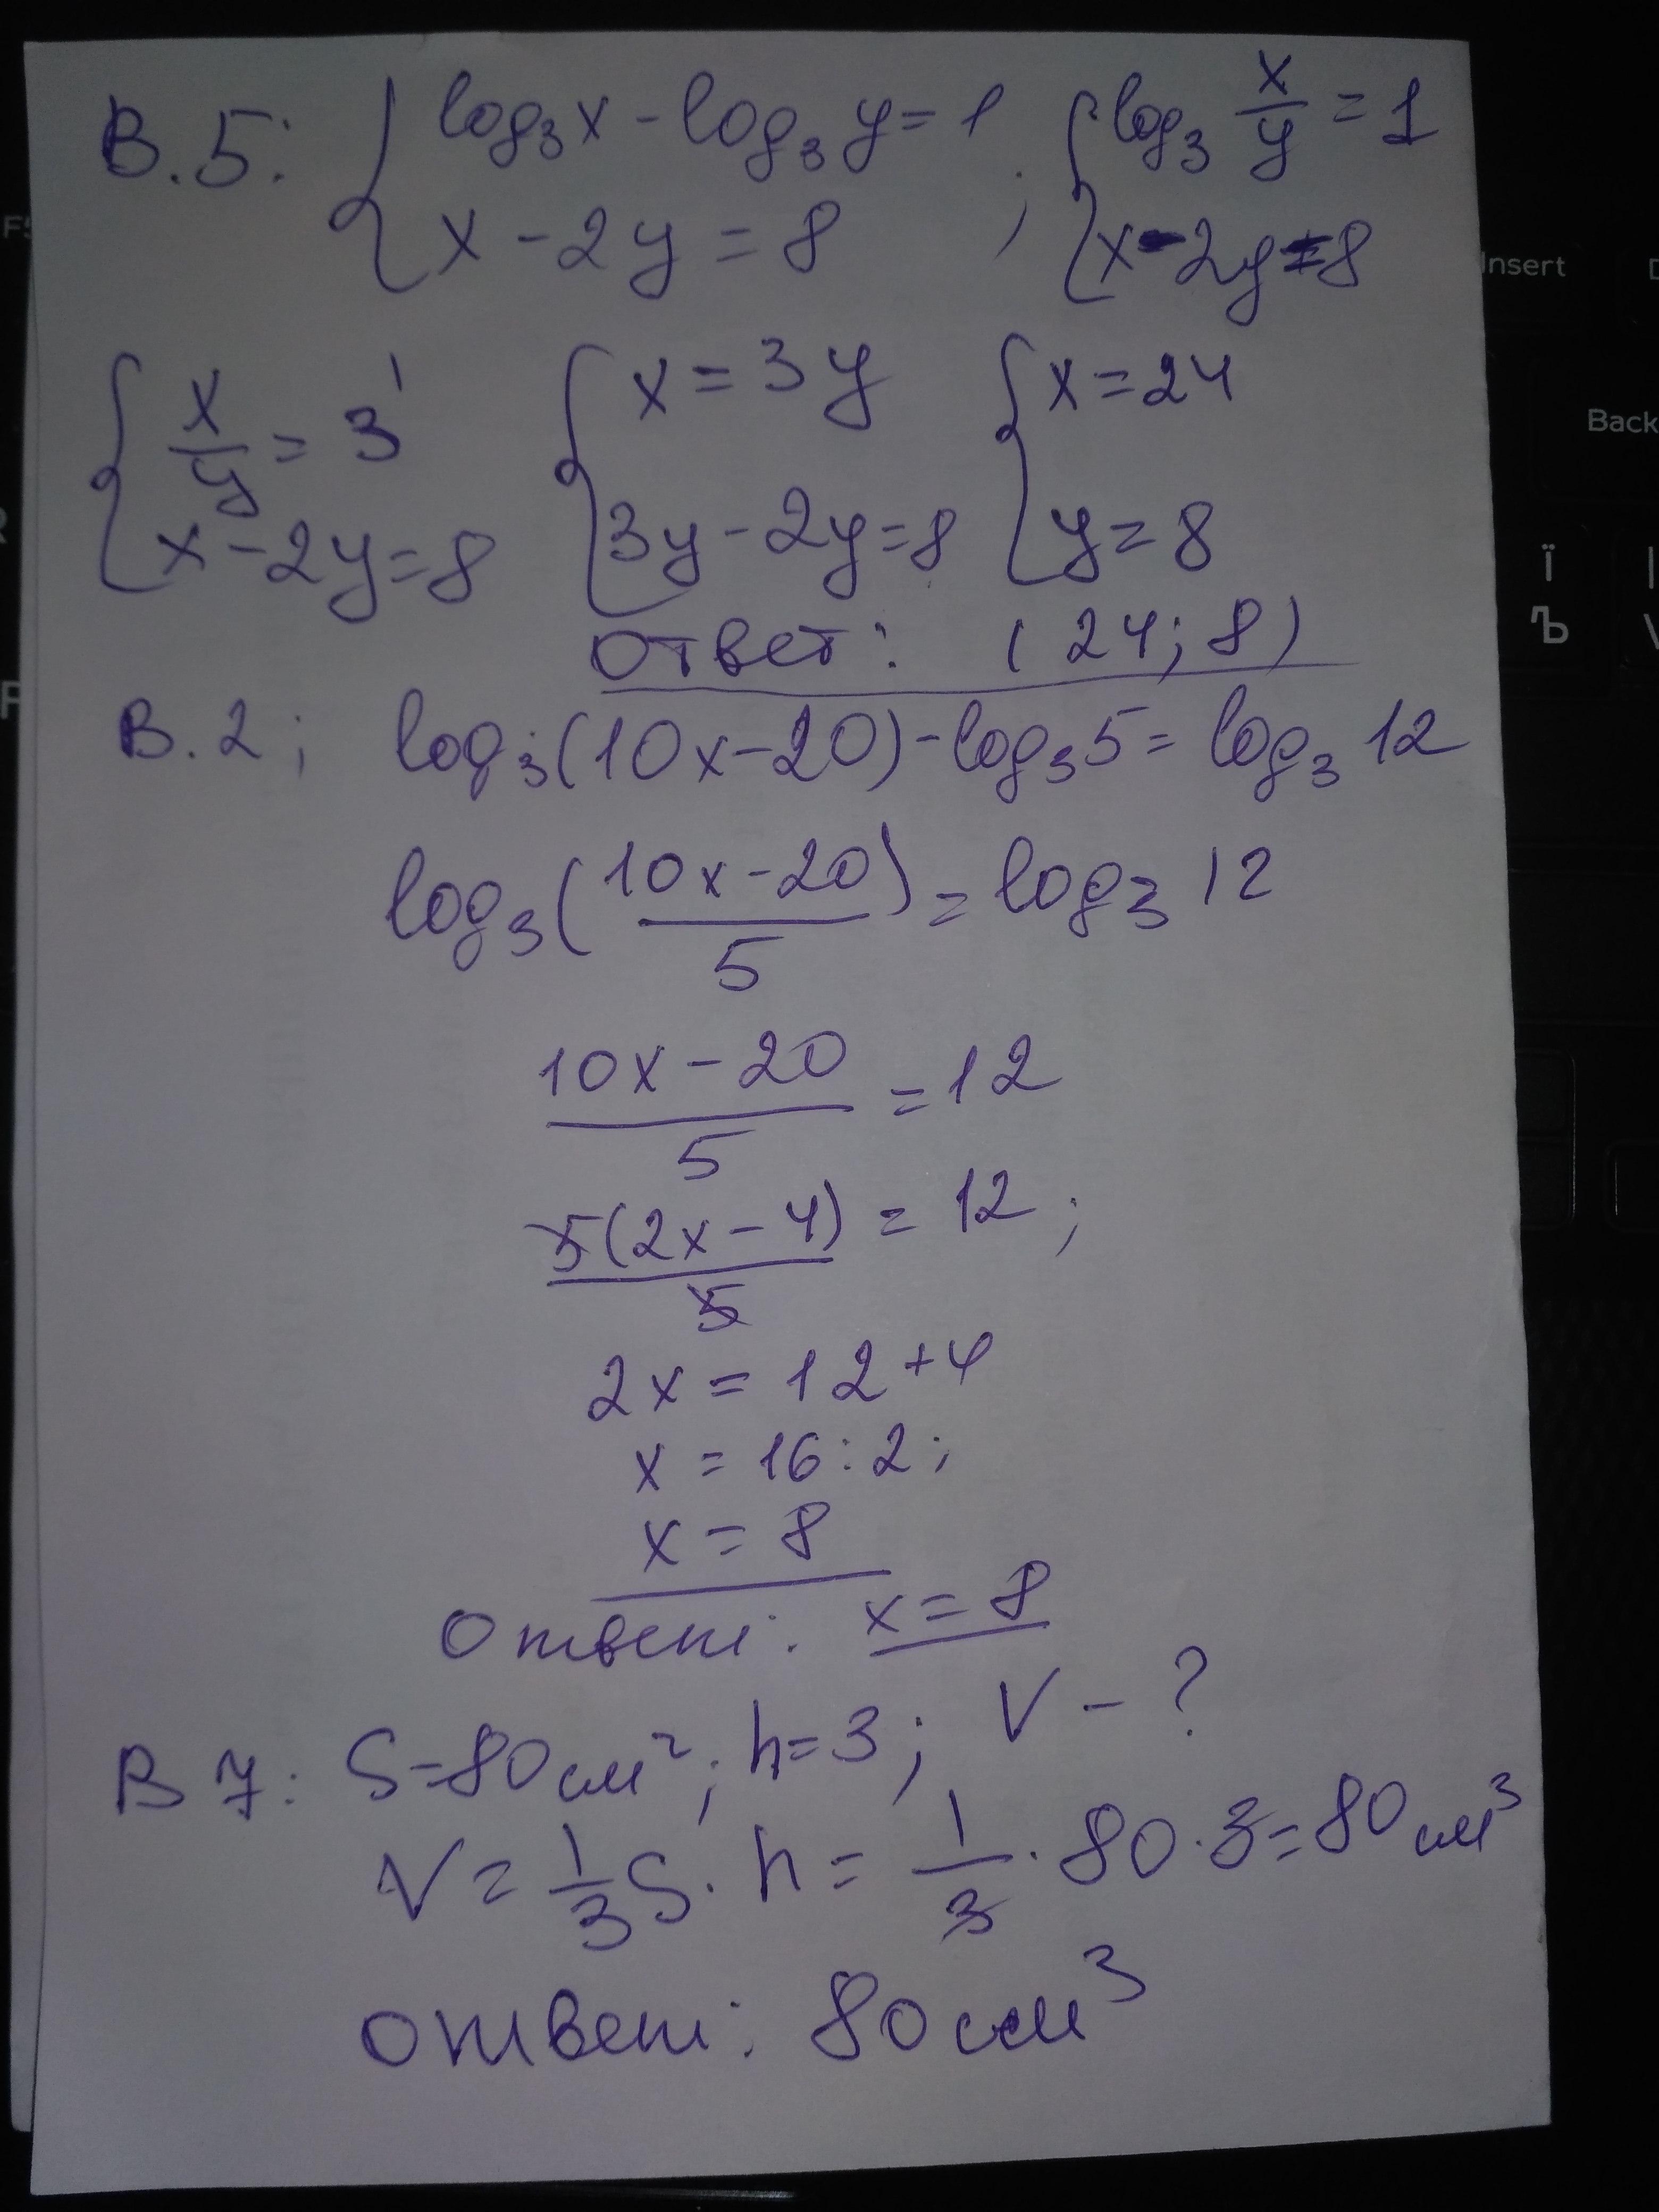 В.5: { log₃x - log₃y = 1 ; { log₃ x/y = 1
x - 2y = 8 x - 2y = 8
{ x/y = 3¹ { x = 3y { x = 24
x - 2y = 8 3y - 2y = 8 y = 8
Ответ: (24; 8)
В.2; log₃(10x-20) - log₃5 = log₃12
log₃((10x-20)/5) = log₃12
(10x-20)/5 = 12
5(2x-4)/5 = 12;
2x = 12+4
x = 16:2;
x = 8
Ответ: x = 8
В 7: S=80см²; h=3; V - ?
V = 1/3 S · h = 1/3 · 80 · 3 = 80 см³
Ответ: 80 см³
F5
Insert
D
Back
Ї
Ъ